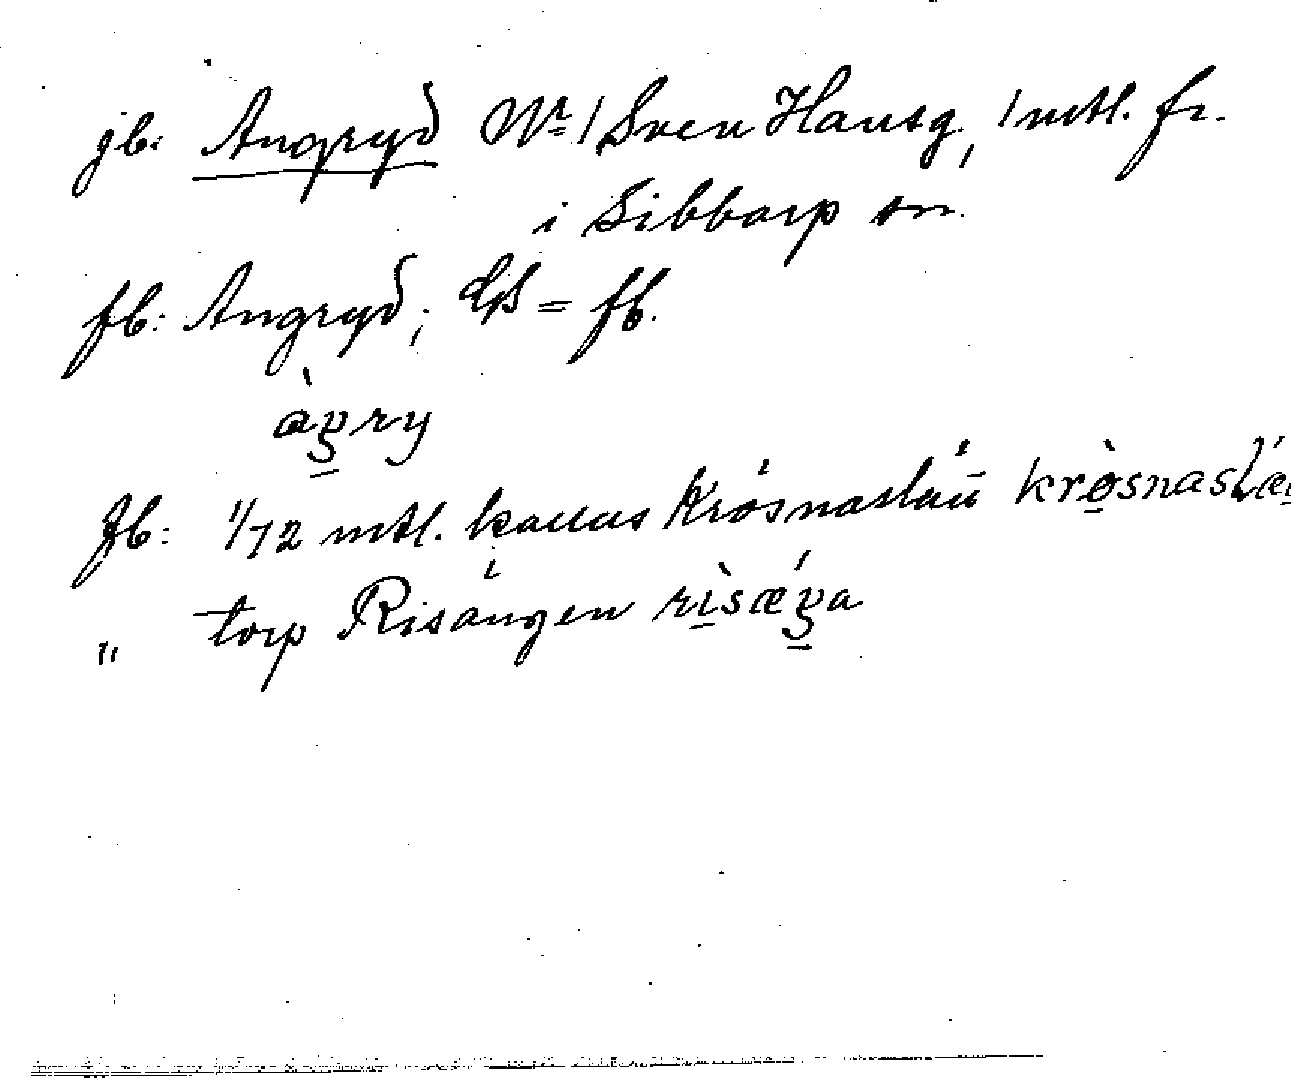 jb: Angryd Nr 1 Sven Hansg., 1 mtl. fr.
i Sibbarp sn.
fb: Angryd; GS = fb.
àŋry
Jb: 1/72 mtl. kallas Krösnaslätt krøsnaslæ
" torp Risängen rìsǽŋa